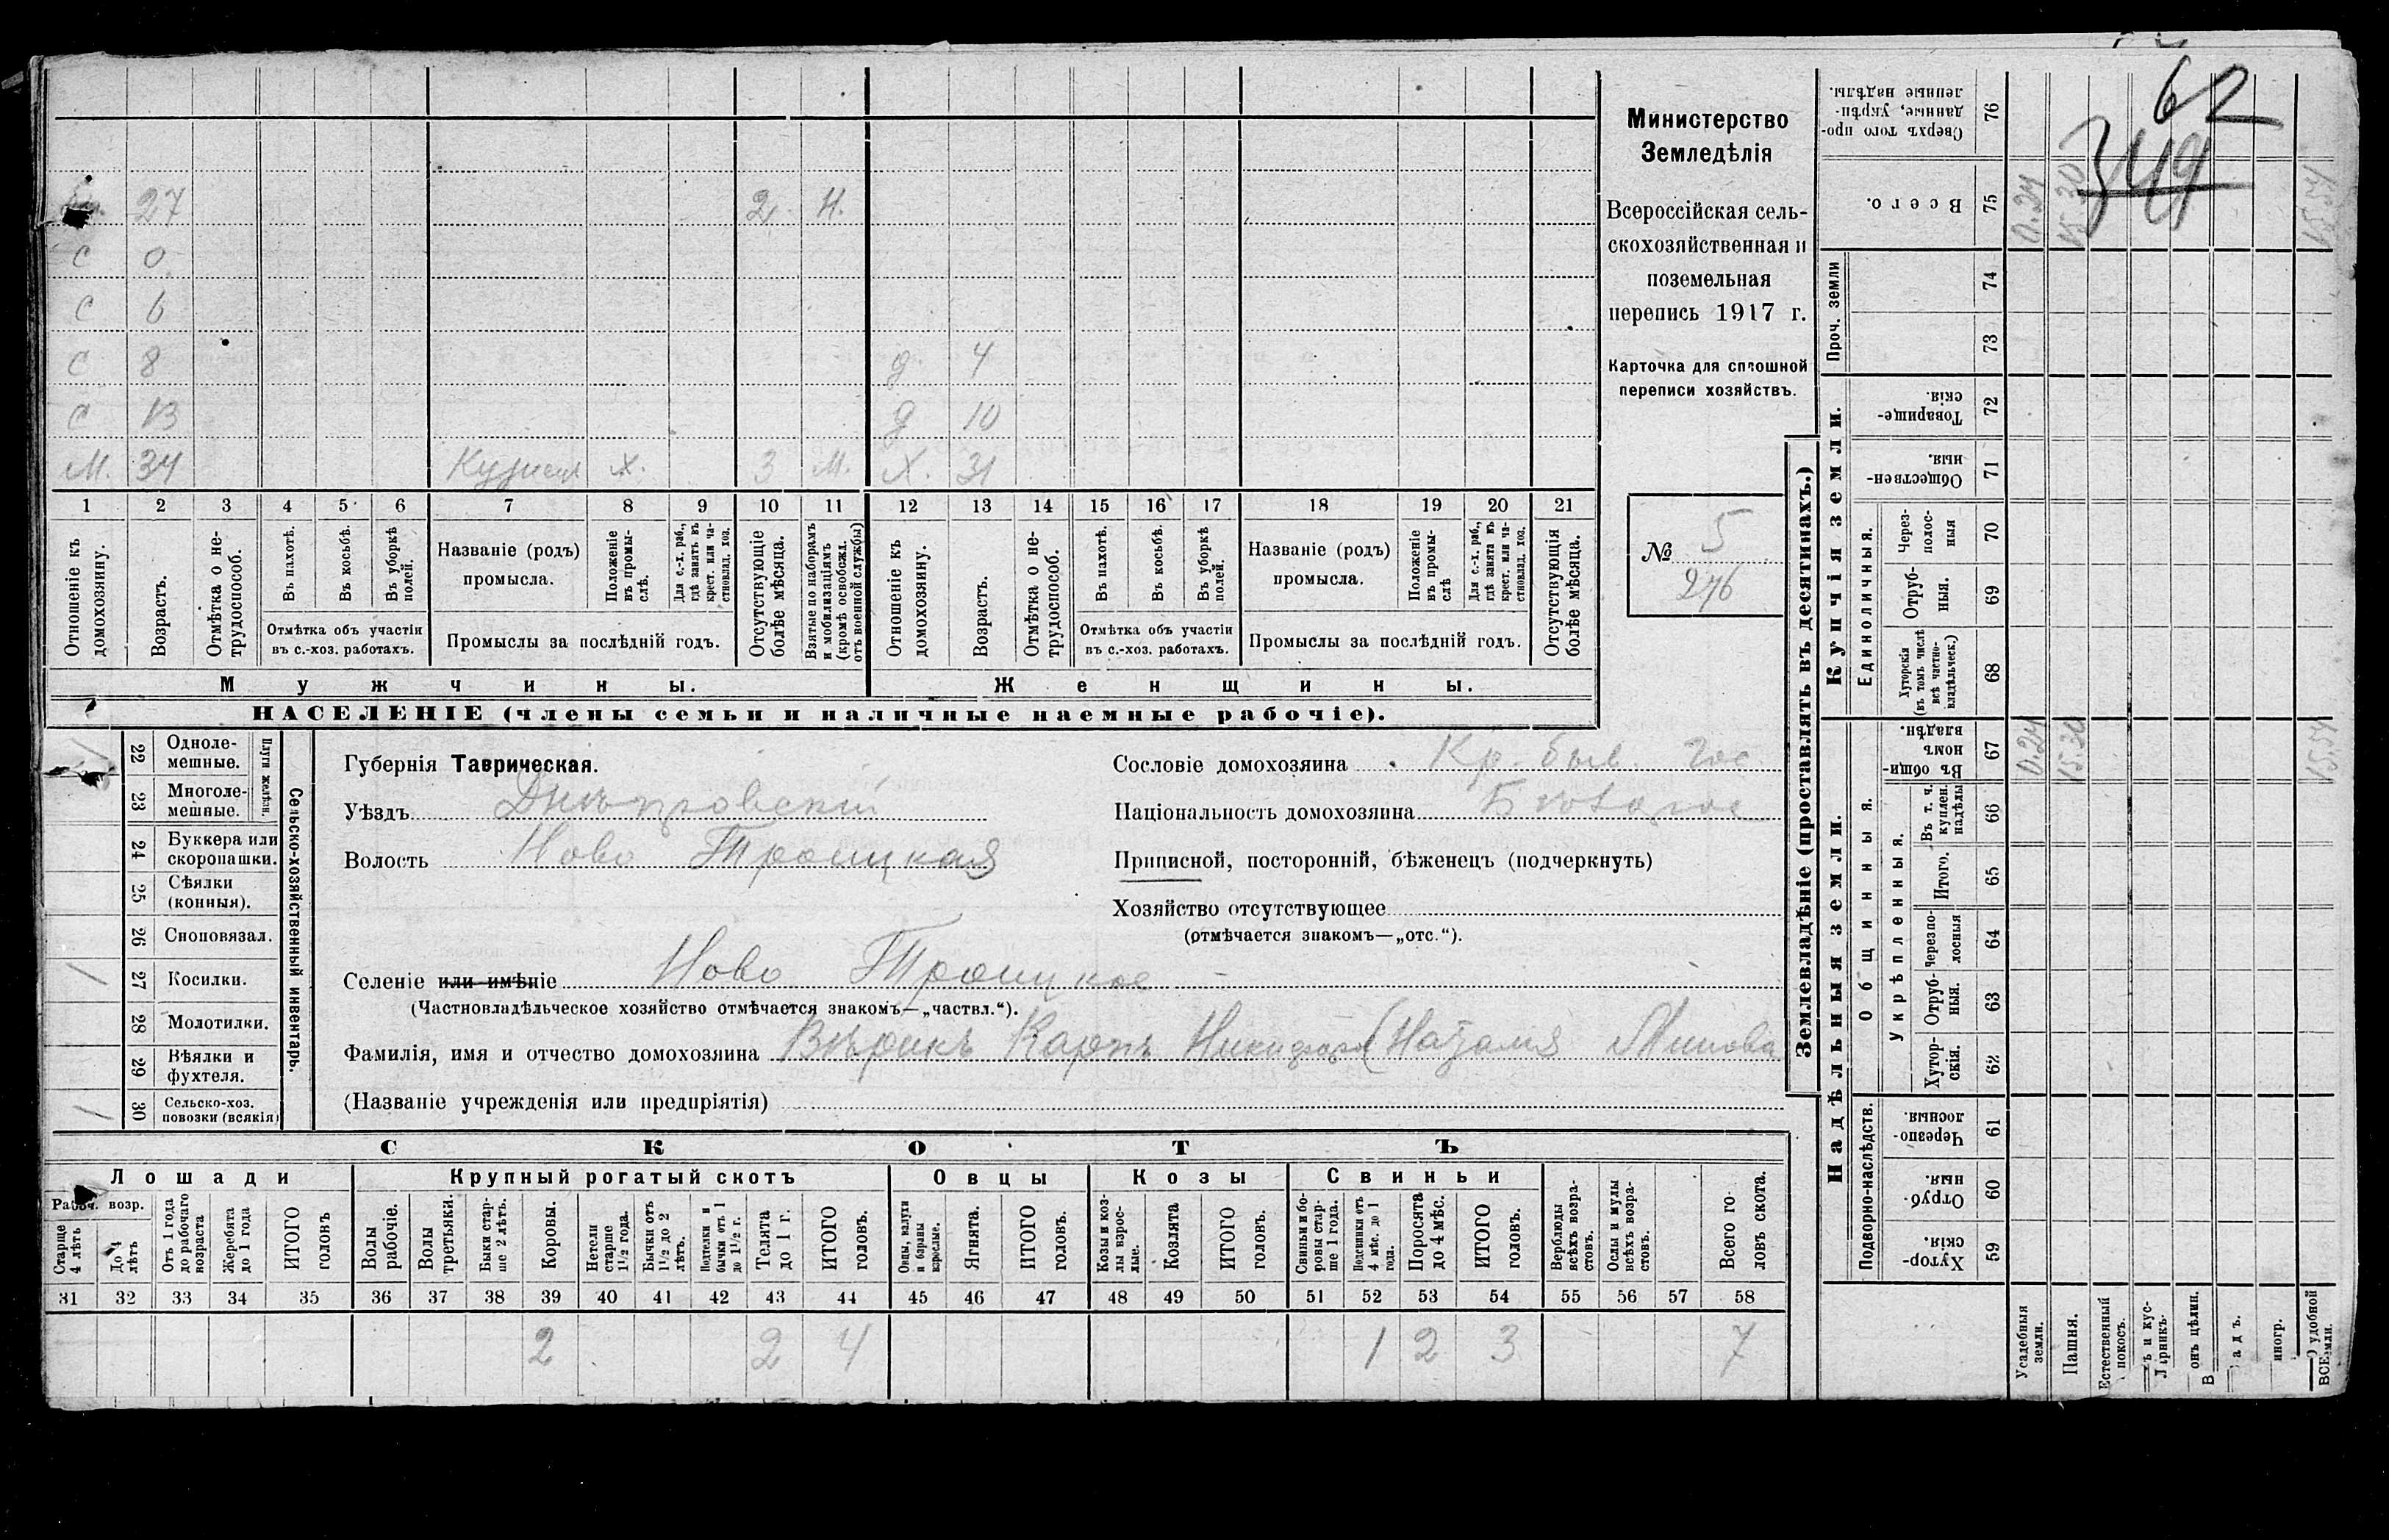 бр. 27 2 Н.
С 0
С 6
С 8 д. 4
С 13 д 10
М. 34 Кузнец х. 3 М. Х. 31
1 2 3 4 5 6 7 8 9 10 11 12 13 14 15 16 17 18 19 20 21
Отношеніе къ домохозяину.
Возрастъ.
Отмѣтка о нетрудоспособ.
Въ пахотѣ.
Въ косьбѣ.
Въ уборкѣ полей.
Отмѣтка объ участіи въ с.-хоз. работахъ.
Названіе (родъ) промысла.
Положеніе въ промыслѣ.
Для с.-х. раб., гдѣ занятъ въ крест. или частновлад. хоз.
Промыслы за послѣдній годъ.
Отсутствующіе болѣе мѣсяца.
Взятые по наборамъ и мобилизаціямъ (кромѣ освобожд. отъ военной службы)
Отношеніе къ домохозяину.
Возрастъ.
Отмѣтка о нетрудоспособ.
Въ пахотѣ.
Въ косьбѣ.
Въ уборкѣ полей.
Отмѣтка объ участіи въ с.-хоз. работахъ.
Названіе (родъ) промысла.
Положеніе въ промыслѣ
Для с.-х. раб., гдѣ занята въ крест. или частновлад. хоз.
Промыслы за послѣдній годъ.
Отсутствующія болѣе мѣсяца.
Мужчины.
Женщины.
НАСЕЛЕНІЕ (члены семьи и наличные наемные рабочіе).
Министерство
Земледѣлія
Всероссійская сель-
скохозяйственная и
поземельная
перепись 1917 г.
Карточка для сплошной
переписи хозяйствъ.
№ 5
276
Сельско-хозяйственный инвентарь.
Плуги желѣзн.
22 Одноле-
мешные.
23 Многоле-
мешные.
24 Буккера или
скоропашки.
25 Сѣялки
(конныя).
26 Сноповязал.
27 Косилки.
28 Молотилки.
29 Вѣялки и
фухтеля.
30 Сельско-хоз.
повозки (всякія)
Губернія Таврическая.
Уѣздъ Днѣпровскій
Волость Ново Троицкая
Селеніе или имѣніе Ново Троицкое
(Частновладѣльческое хозяйство отмѣчается знакомъ—„частвл.“).
Фамилія, имя и отчество домохозяина Вѣрикъ Карпъ Никифоръ (Наталія
(Названіе учрежденія или предпріятія)
Сословіе домохозяина Кр. быв. гос
Національность домохозяина
Приписной, посторонній, бѣженецъ (подчеркнуть)
Хозяйство отсутствующее
(отмѣчается знакомъ—„отс.“).
СКОТЪ
Лошади
Крупный рогатый скотъ
Овцы
Козы
Свиньи
Рабоч. возр.
Старше 4 лѣтъ
До 4 лѣтъ
Отъ 1 года до рабочаго возраста
Жеребята до 1 года
ИТОГО головъ
Волы рабочіе.
Волы третьяки.
Быки старше 2 лѣтъ.
Коровы.
Нетели старше 1½ года.
Бычки отъ 1½ до 2 лѣтъ.
Подтелки и бычки отъ 1 до 1½ г.
Телята до 1 г.
ИТОГО головъ.
Овцы, валухи и бараны взрослые.
Ягнята.
ИТОГО головъ.
Козы и козлы взрослые.
Козлята
ИТОГО головъ.
Свиньи и боровы старше 1 года.
Подсвинки отъ 4 мѣс. до 1 года.
Поросята до 4 мѣс.
ИТОГО головъ.
Верблюды всѣхъ возрастовъ.
Ослы и мулы всѣхъ возрастовъ.
Всего головъ скота.
31 32 33 34 35 36 37 38 39 40 41 42 43 44 45 46 47 48 49 50 51 52 53 54 55 56 57 58
2 2 4 1 2 3 7
Землевладѣніе (проставлять въ десятинахъ.)
62
349
Сверхъ того проданные, укрѣпленные надѣлы. 76
Всего. 75 0.24 15.30 15.54
Проч. земли 74
73
Купчія земли.
Товарищескія. 72
Общественныя. 71
Единоличныя.
Черезполосныя 70
Отрубныя. 69
Хуторскія (въ томъ числѣ всѣ частновладѣльческ.) 68
Надѣльныя земли.
Общинныя.
Въ общинномъ владѣн. 67 0.24 15.30 15.54
Укрѣпленныя.
Въ т. ч. куплен. надѣлы 66
Итого. 65
Черезполосныя 64
Отрубныя. 63
Хуторскія. 62
Подворно-наслѣдств.
Черезполосныя. 61
Отрубныя. 60
Хуторскія. 59
Усадебныя земли.
Пашня.
Естественный покосъ.